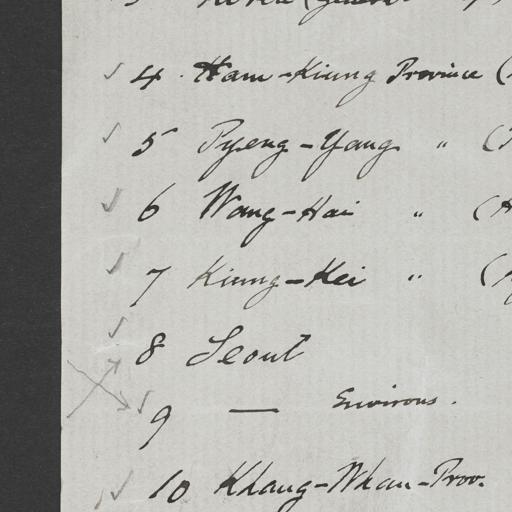 4. Ham-Kiung Province (
5 Pyeng-Yang " (
6 Wang-Hai " (
7 Kiung-Kei " (
8 Seoul
9 — Environs.
10 Khang-Whan-Prov.